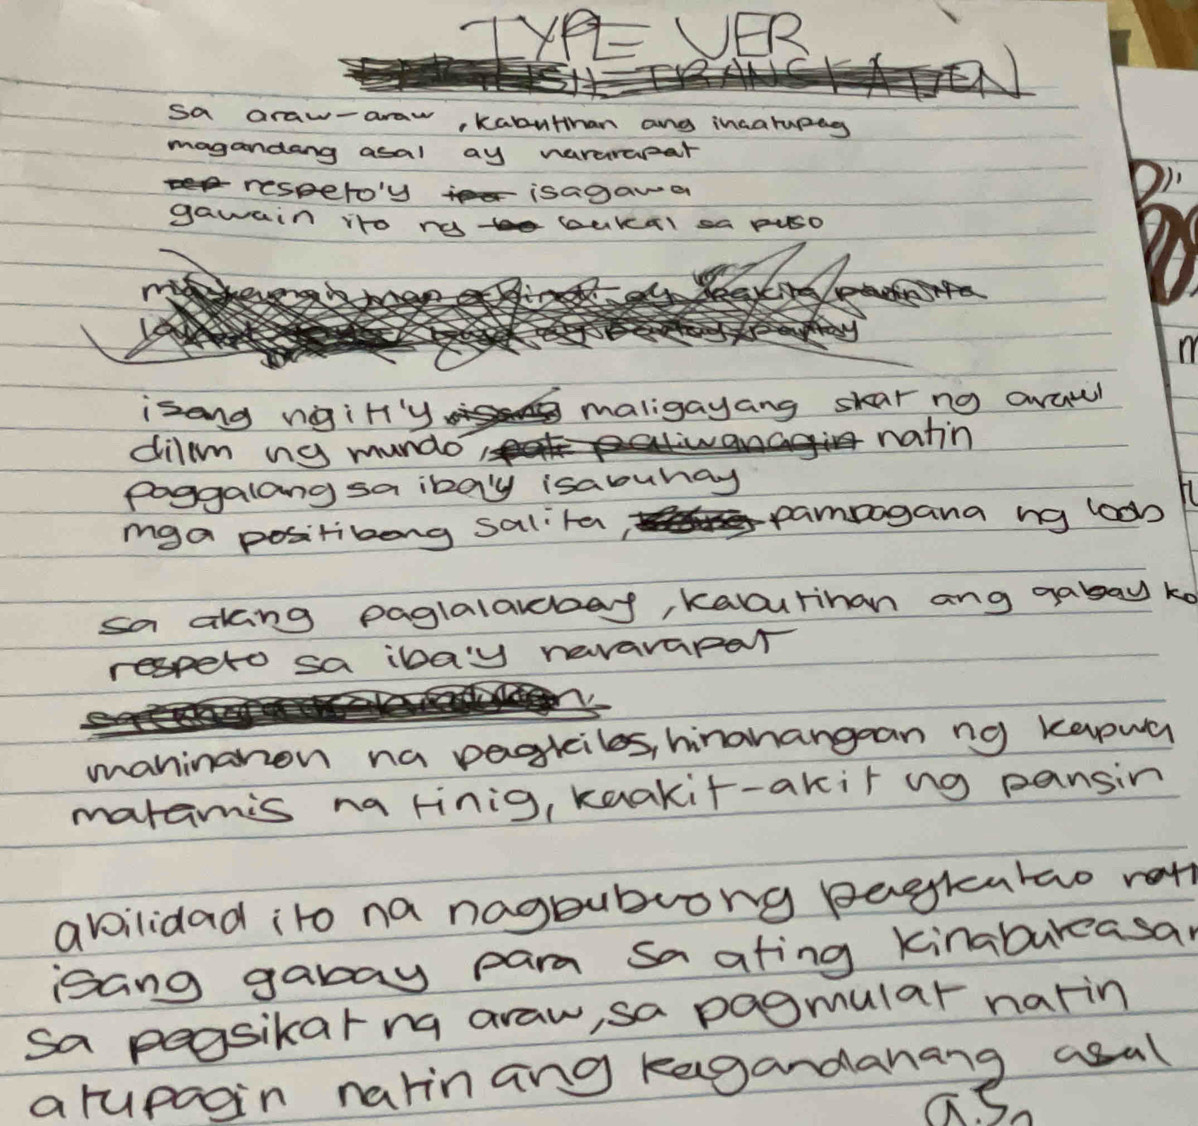 TYPE VER
sa araw-araw, kabutihan ang inaatupag
magandang asal ay nararapat
respeto'y isagawa
gawain ito ng bukal sa puso
isang ngiti'y maligayang sikat ng araw
dilim ng mundo, paliwanagin natin
paggalang sa iba'y isabuhay
mga positibong salita, pampagana ng loob
sa aking paglalakbay, kabutihan ang gabay ko
respeto sa iba'y nararapat
mahinahon na pagkilos, hinahangaan ng kapwa
matamis na tinig, kaakit-akit ng pansin
abilidad ito na nagbubuong pagkatao nati
isang gabay para sa ating kinabukasan
sa pagsikat ng araw, sa pagmulat natin
atupagin natin ang kagandahang asal
a.s.